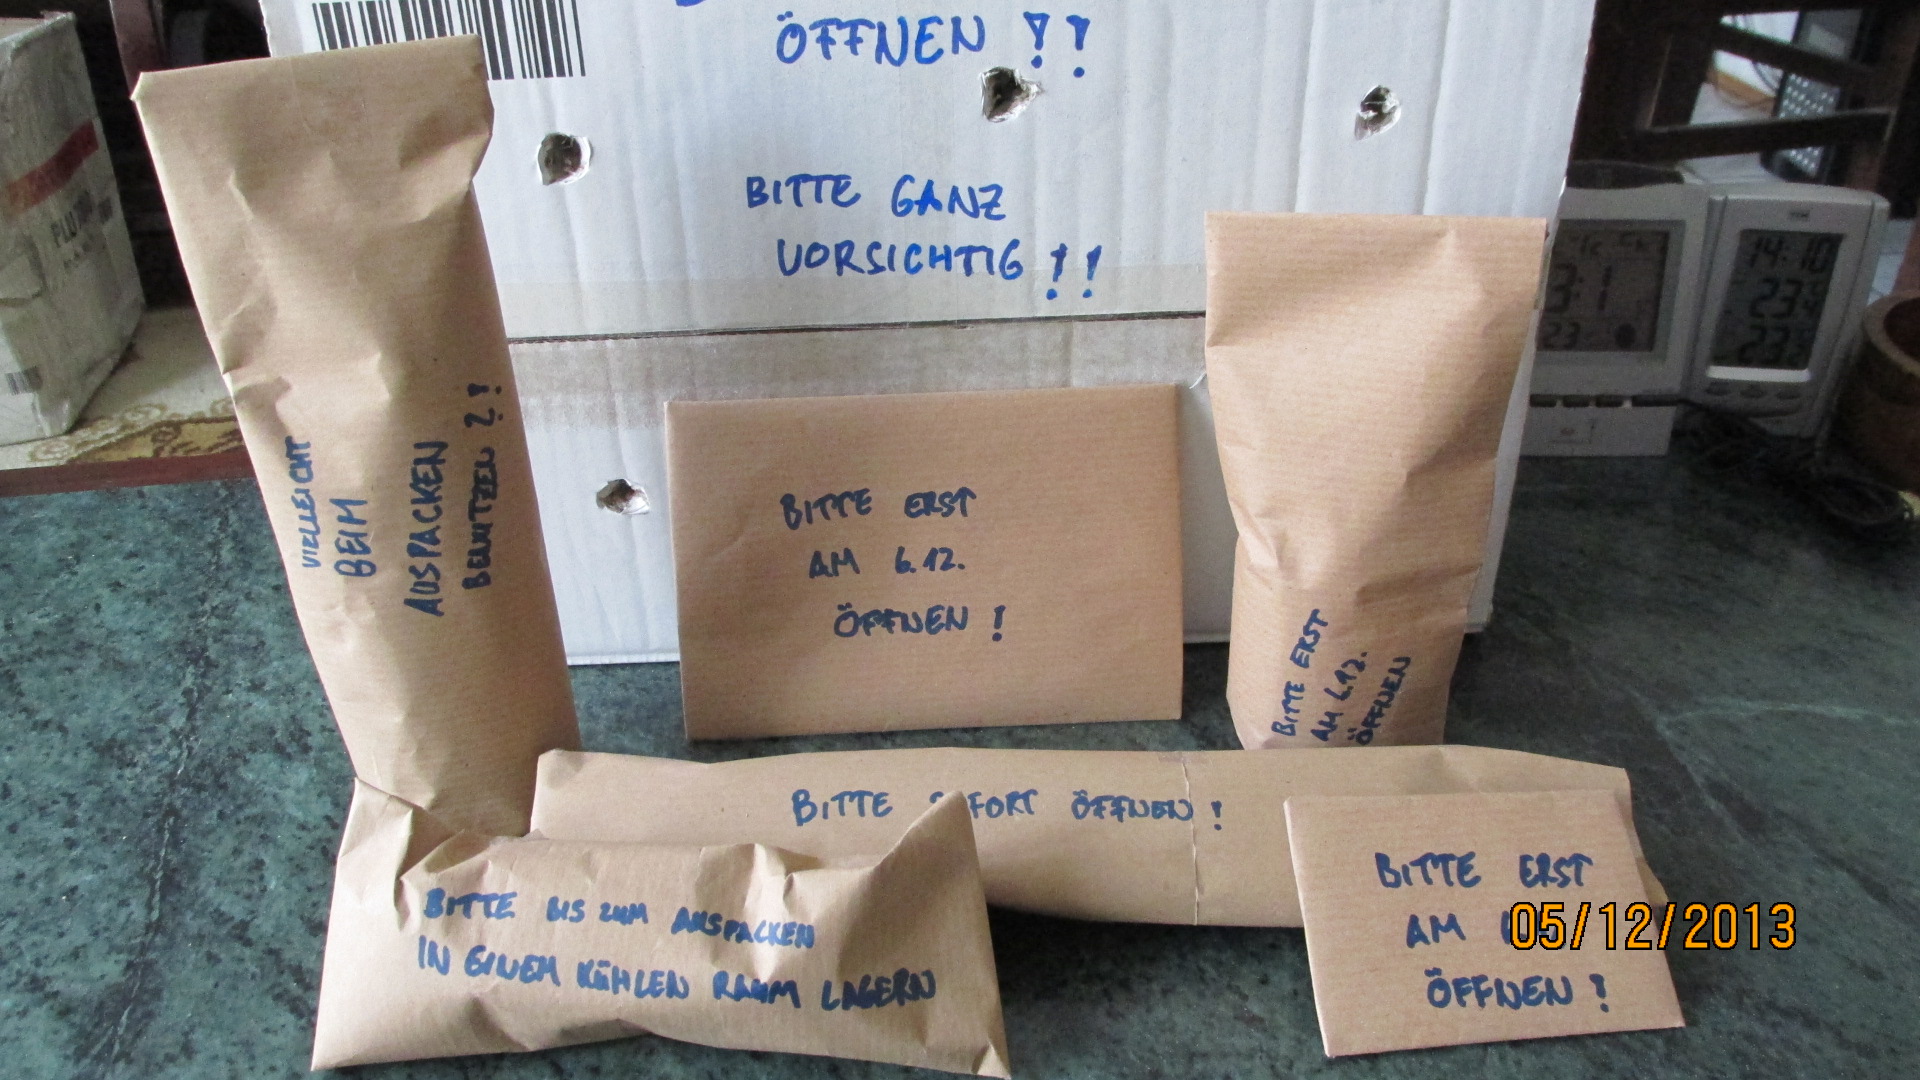 ÖFFNEN !!
BITTE GANZ
VORSICHTIG !!
VIELLEICHT
BEIM
AUSPACKEN
BENUTZEN ?!
BITTE ERST
AM 6.12.
ÖFFNEN !
BITTE ERST
AM 6.12.
ÖFFNEN
14:10
BITTE SOFORT ÖFFNEN !
BITTE BIS ZUM AUSPACKEN
IN EINEM KÜHLEN RAUM LAGERN
BITTE ERST
AM
ÖFFNEN !
05/12/2013